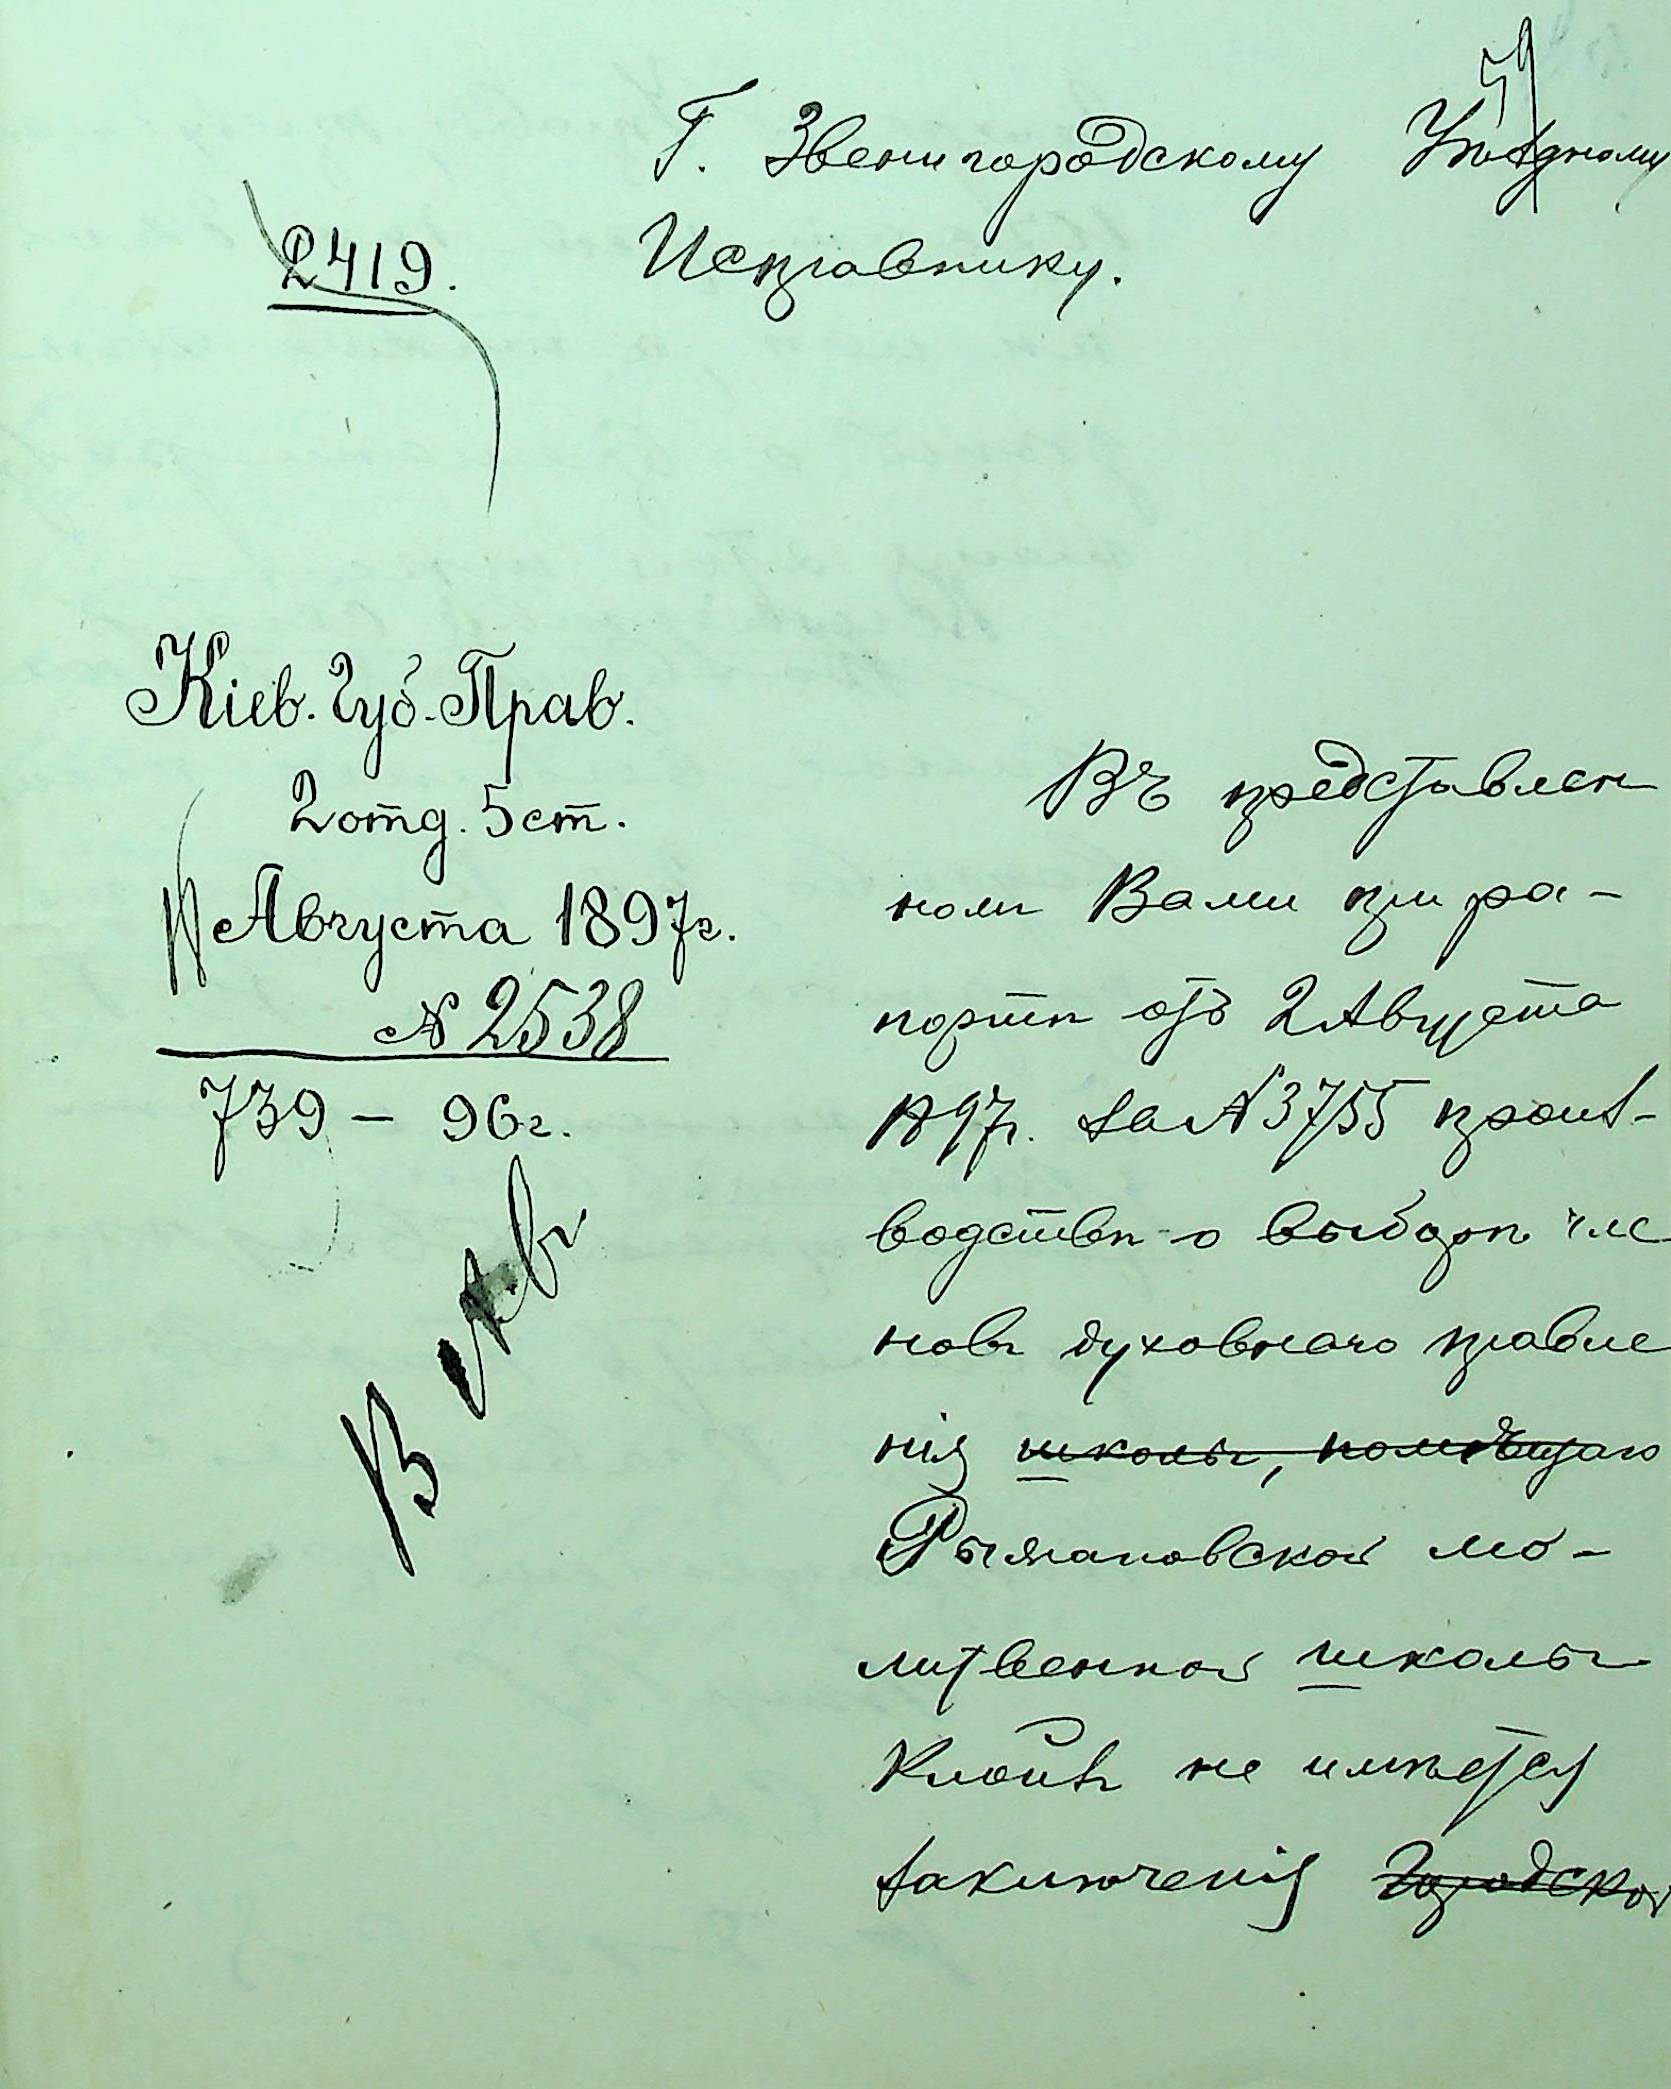 59
Г. Звенигородскому Уѣздному
Исправнику.
2419.
Кіев. Губ. Прав.
2 отд. 5 ст.
Августа 1897 г.
№ 2538
739 – 96 г.
Въ представлен
номъ Вами при ра-
портѣ отъ 2 Августа
1897 г. за № 3755 произ-
водствѣ о выборѣ чле
новъ духовнаго правле
нія школы, помѣщаю
Рыжановской мо-
литвенной школы
Клойзъ не имѣется
заключенія Городской